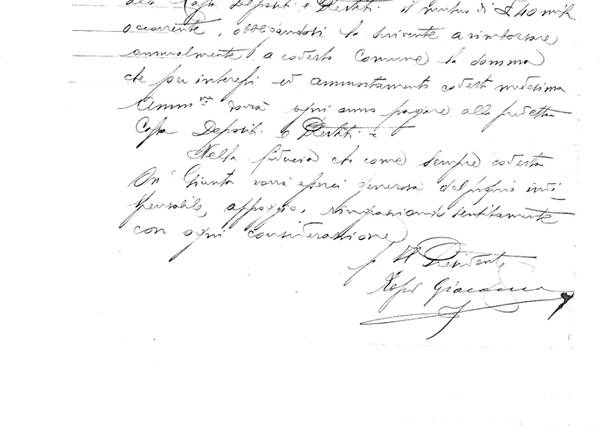 alla Cassa Depositi e Prestiti il mutuo di £ 40 mila
occorrente, obbligandosi la scrivente a rimborsare,
annualmente a codesto Comune la somma
che per interessi ed ammortamenti codesta medesima
Ammne dovrà ogni anno pagare alla predetta
Cassa Depositi e Prestiti =
Nella fiducia che come sempre codesta
On. Giunta vorrà esserci generosa del proprio indi
spensabile, appoggio, ringraziando sentitamente
con ogni considerazione
Il Presidente
Giacomo